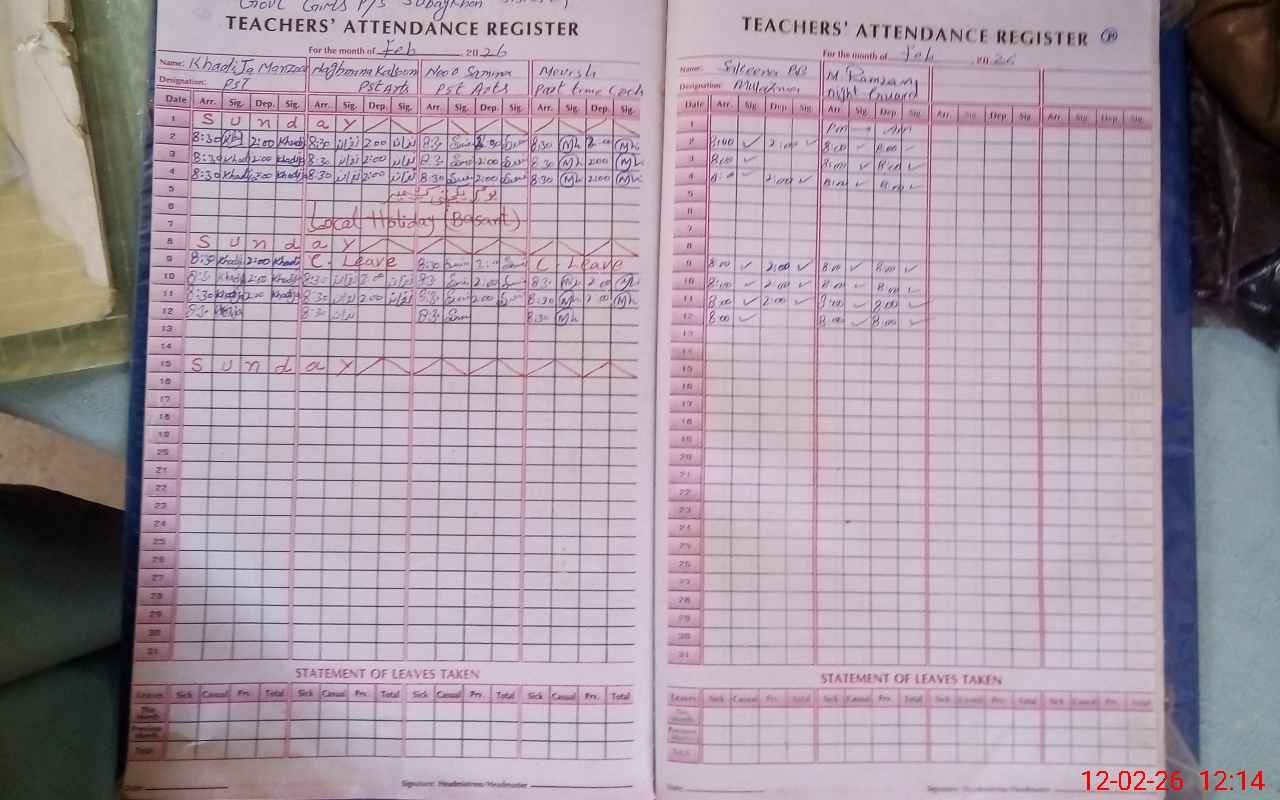 Govt Girls P/S
TEACHERS' ATTENDANCE REGISTER
For the month of Feb , 2026
Name: Khadija Manzoor Kalsoom Samina Mevish
Designation: PST Pst Arts Pst Arts Part time Coch
Date Arr. Sig. Dep. Sig. Arr. Sig. Dep. Sig. Arr. Sig. Dep. Sig. Arr. Sig. Dep. Sig.
1 S u n d a y
2 8:30 2:00 Khadij 8:30 2:00 8:30 Mh
3 8:30 2:00 8:30 2:00 2:00 8:30 Mh 2:00 Mh
4 8:30 Khadi 2:00 Khadij 8:30 2:00 8:30 2:00 8:30 Mh 2:00 Mh
5
6
7 Local Holiday (Basant)
8 S u n d a y
9 8:30 Khadi 2:00 Khadi C. Leave 8:30 C. Leave
10 8:30 Khadi 2:00 Khadij 8:30 2:00 8:30 2:00 8:30 2:00 Mh
11 8:30 Khadij 2:00 Khadij 8:30 2:00 8:30 2:00 8:30 2:00 Mh
12 8:30 8:30 8:30 8:30 Mh
13
14
15 S u n d a y
16
17
18
19
20
21
22
23
24
25
26
27
28
29
30
31
STATEMENT OF LEAVES TAKEN
Leaves Sick Casual Prv. Total Sick Casual Prv. Total Sick Casual Prv. Total Sick Casual Prv. Total
This Month
Previous Month
Total
Date Signature: Headmistress/Headmaster
TEACHERS' ATTENDANCE REGISTER
For the month of Feb , 2026
Name: Sakeena BB M. Ramzan
Designation: Night Guard
Date Arr. Sig. Dep. Sig. Arr. Sig. Dep. Sig. Arr. Sig. Dep. Sig. Arr. Sig. Dep. Sig.
1 Pm → Am
2 8:00 ✓ 2:00 ✓ 8:00 ✓ 8:00 ✓
3 8:00 ✓ 8:00 ✓ 8:00 ✓
4 2:00 ✓ 8:00 ✓ 8:00 ✓
5
6
7
8
9 8:00 ✓ 2:00 ✓ 8:00 ✓ 8:00 ✓
10 8:00 ✓ 2:00 ✓ 8:00 ✓ 8:00 ✓
11 8:00 ✓ 2:00 ✓ 8:00 ✓ 8:00 ✓
12 8:00 ✓ 8:00 ✓ 8:00 ✓
13
14
15
16
17
18
19
20
21
22
23
24
25
26
27
28
29
30
31
STATEMENT OF LEAVES TAKEN
Leaves Sick Casual Prv. Total Sick Casual Prv. Total Sick Casual Prv. Total Sick Casual Prv. Total
This Month
Previous Month
Total
Date Signature: Headmistress/Headmaster
12-02-26 12:14